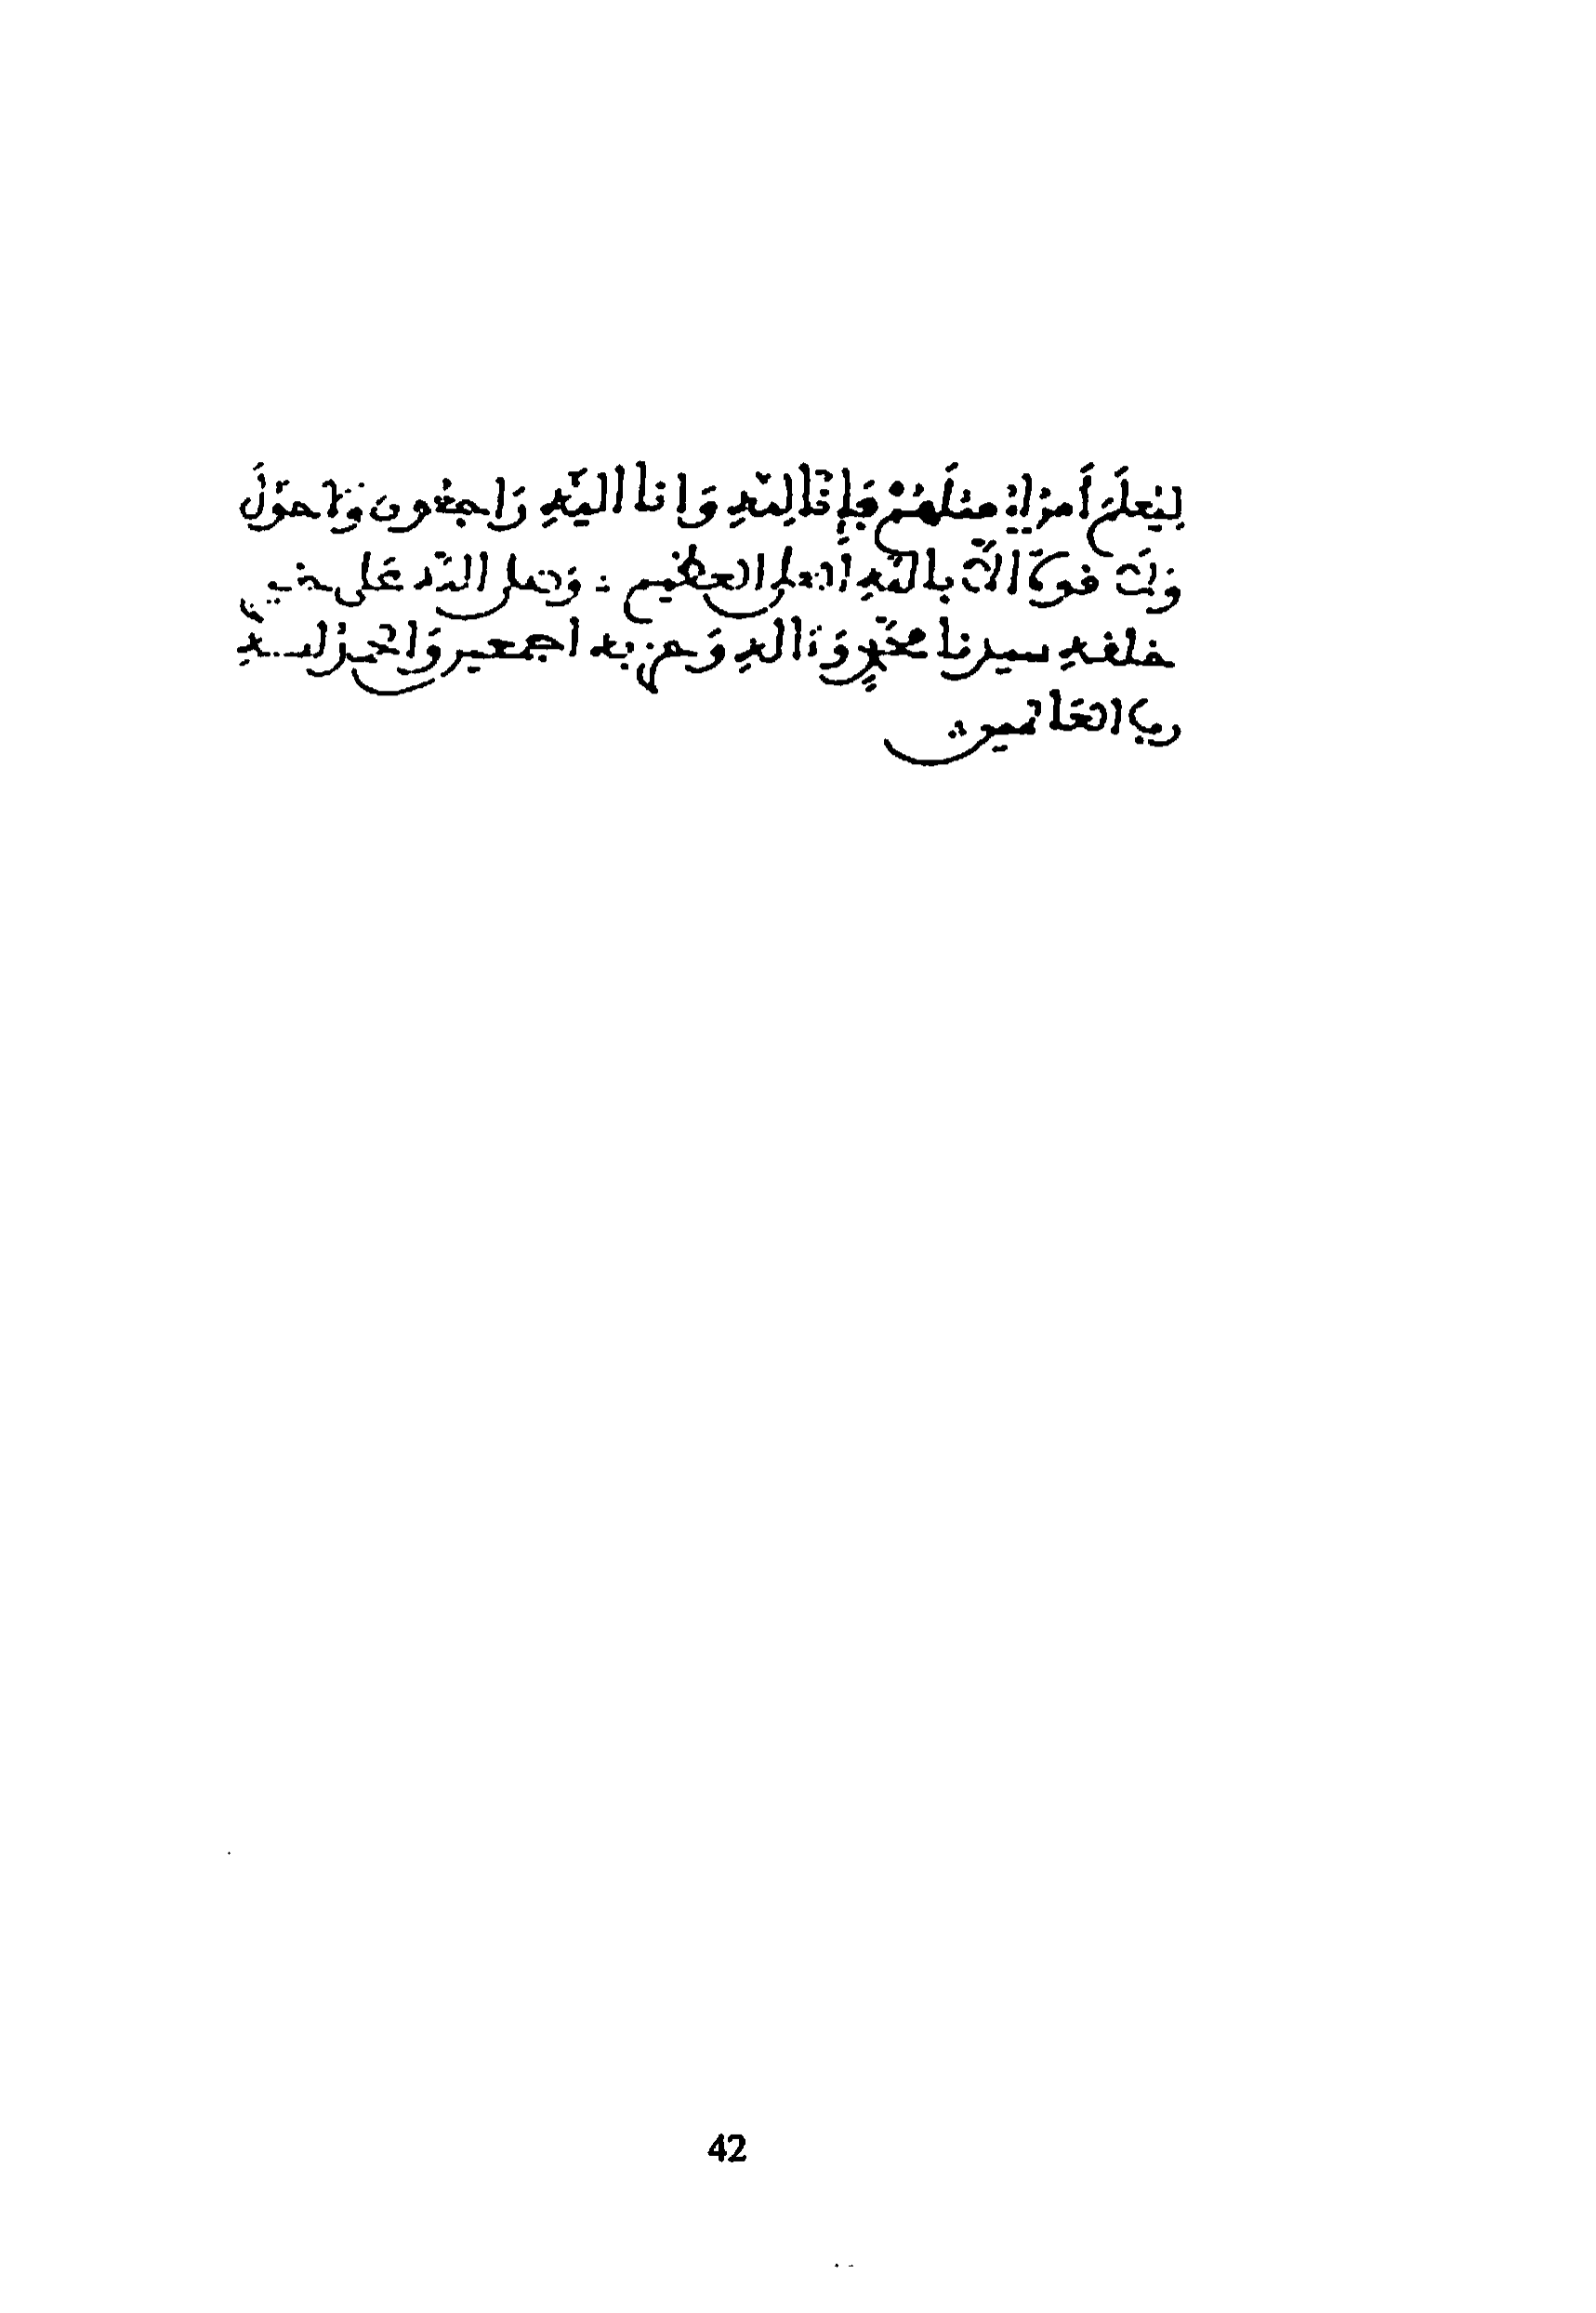 لِيَعْلَمَ أَمْرَاءَ مِثْلَهُمْ فَإِنَّا لِلَّهِ وَإِنَّا إِلَيْهِ رَاجِعُونَ وَلَا حَوْلَ
وَلَا قُوَّةَ إِلَّا بِاللَّهِ الْعَلِيِّ الْعَظِيمِ وَصَلَّى اللَّهُ عَلَى خَيْرِ
خَلْقِهِ سَيِّدِنَا مُحَمَّدٍ وَءَالِهِ وَحِزْبِهِ أَجْمَعِينَ وَالْحَمْدُ لِلَّهِ
رَبِّ الْعَالَمِينَ
42